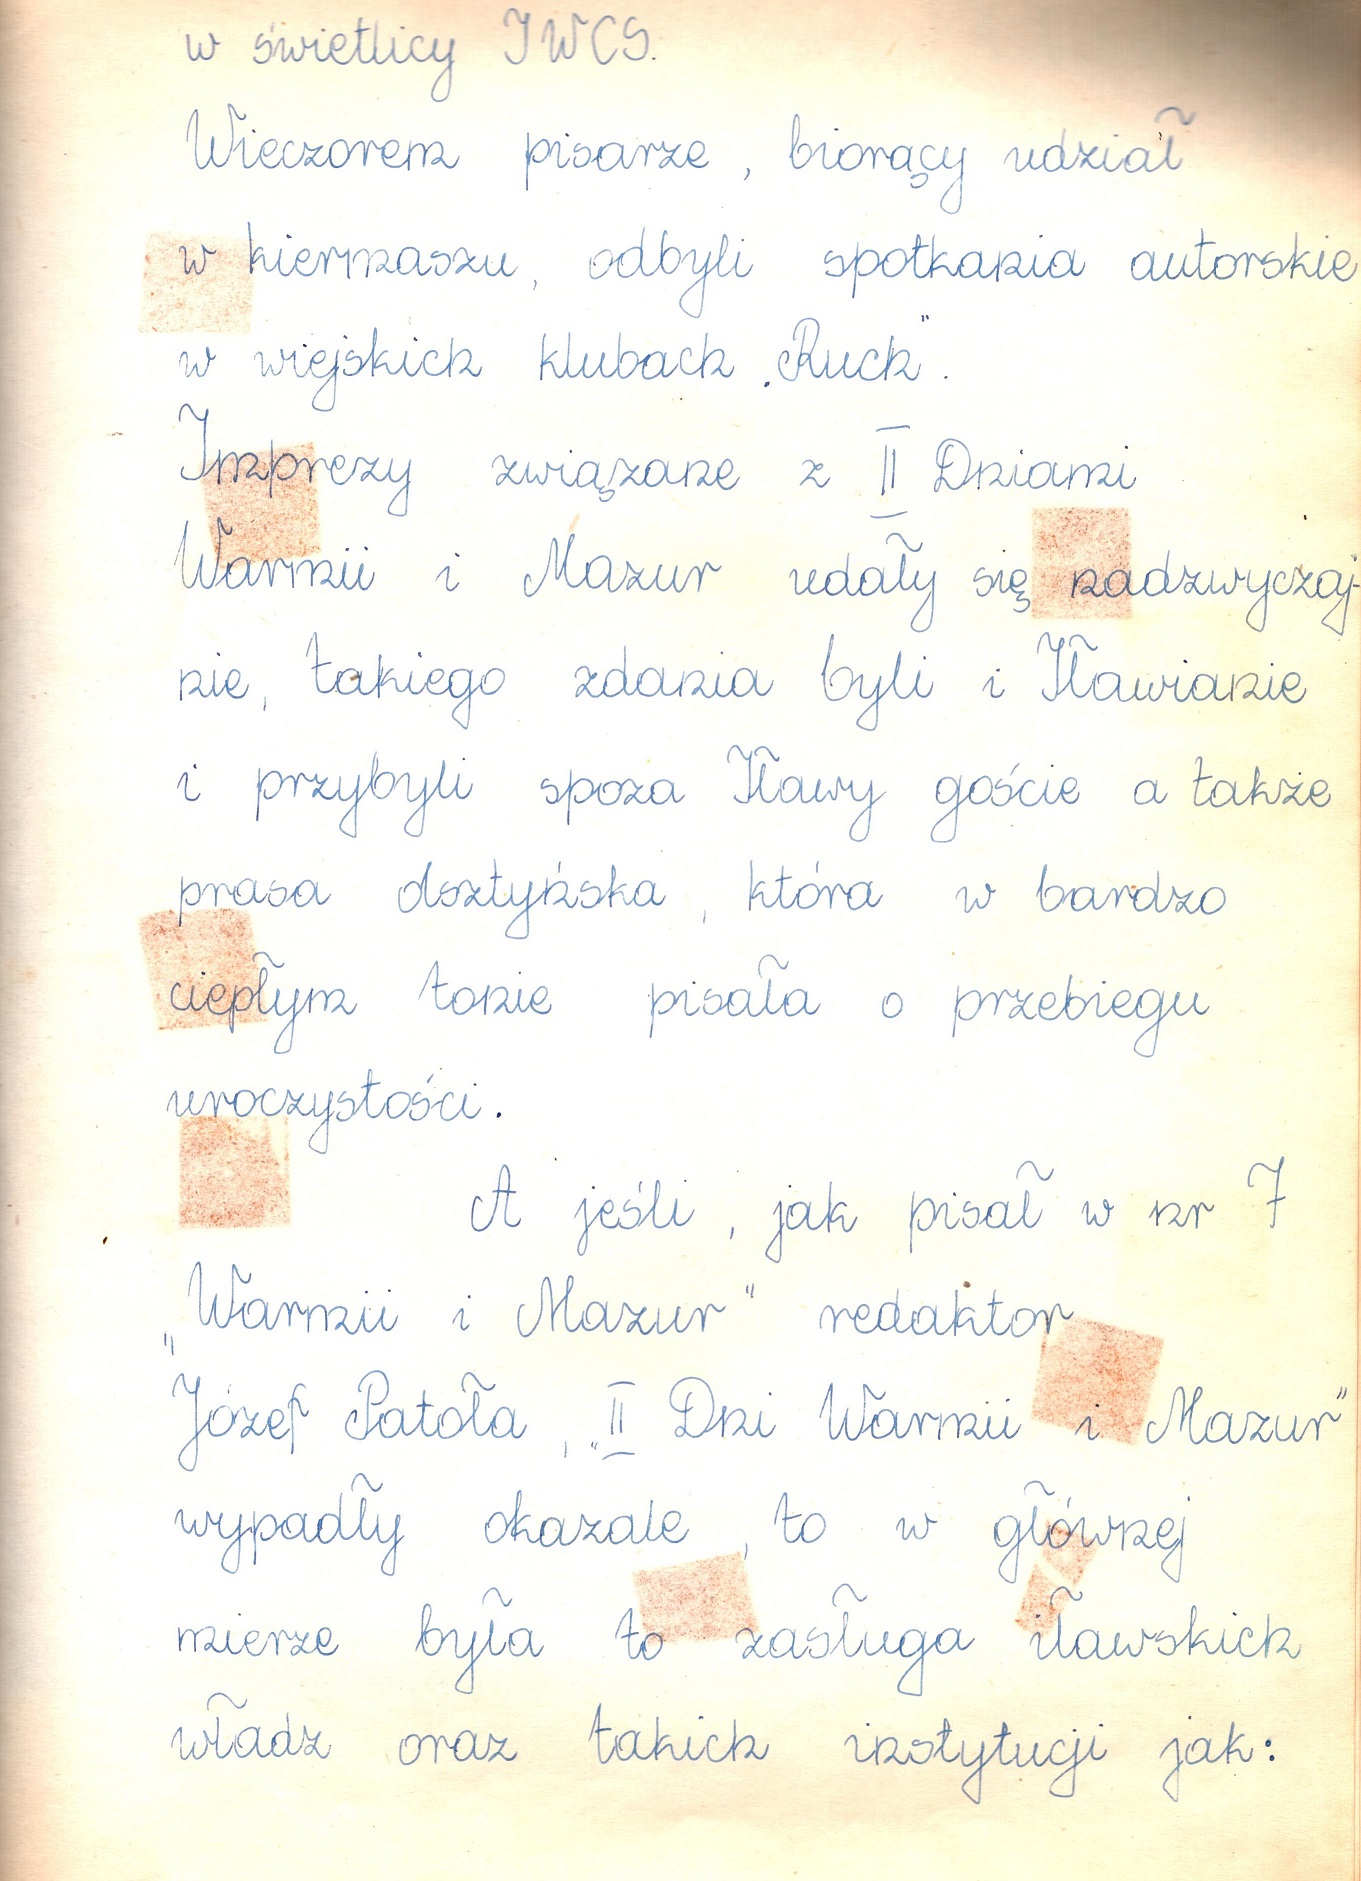 w świetlicy IWCS.
Wieczorem pisarze, biorący udział
w kiermaszu, odbyli spotkania autorskie
w wiejskich klubach „Ruch".
Imprezy związane z II Dniami
Warmii i Mazur udały się nadzwyczaj-
nie, takiego zdania byli i Iławianie
i przybyli spoza Iławy goście a także
prasa olsztyńska, która w bardzo
ciepłym tonie pisała o przebiegu
uroczystości.
A jeśli, jak pisał w nr 7
„Warmii i Mazur" redaktor
Józef Patoła, „II Dni Warmii i Mazur"
wypadły okazale, to w głównej
mierze była to zasługa iławskich
władz oraz takich instytucji jak: